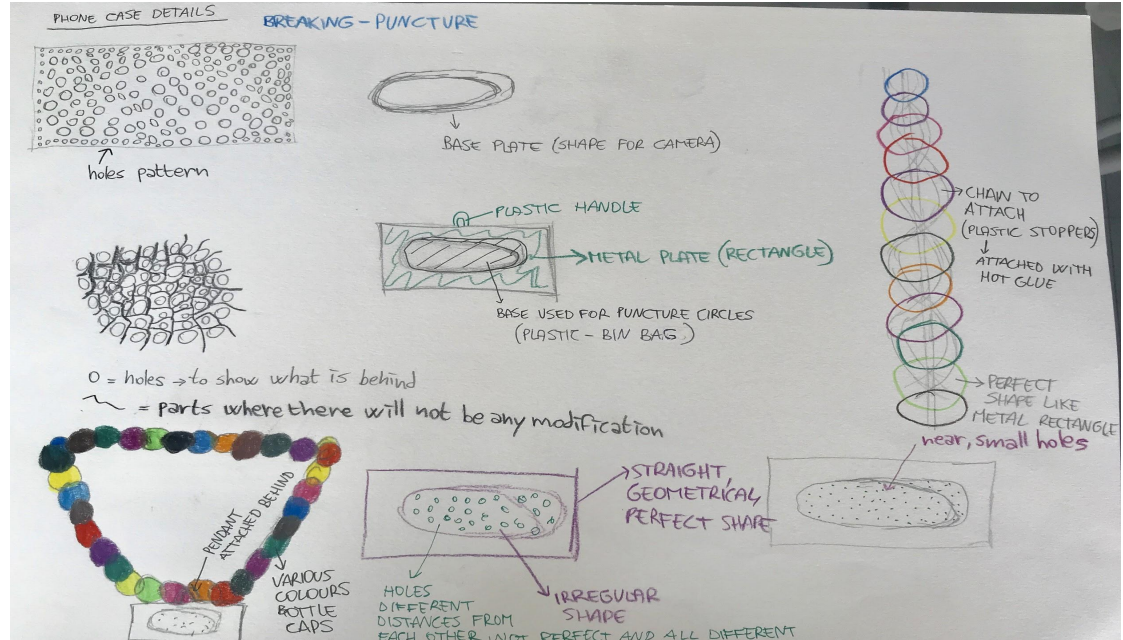 PHONE CASE DETAILS
BREAKING - PUNCTURE
holes pattern
BASE PLATE (SHAPE FOR CAMERA)
PLASTIC HANDLE
METAL PLATE (RECTANGLE)
BASE USED FOR PUNCTURE CIRCLES
(PLASTIC - BIN BAG)
CHAIN TO
ATTACH
(PLASTIC STOPPERS)
ATTACHED WITH
HOT GLUE
PERFECT
SHAPE LIKE
METAL RECTANGLE
O = holes → to show what is behind
= parts where there will not be any modification
PENDANT
ATTACHED BEHIND
VARIOUS
COLOURS
BOTTLE
CAPS
STRAIGHT,
GEOMETRICAL,
PERFECT SHAPE
IRREGULAR
SHAPE
HOLES
DIFFERENT
DISTANCES FROM
EACH OTHER (NOT PERFECT AND ALL DIFFERENT
near, small holes